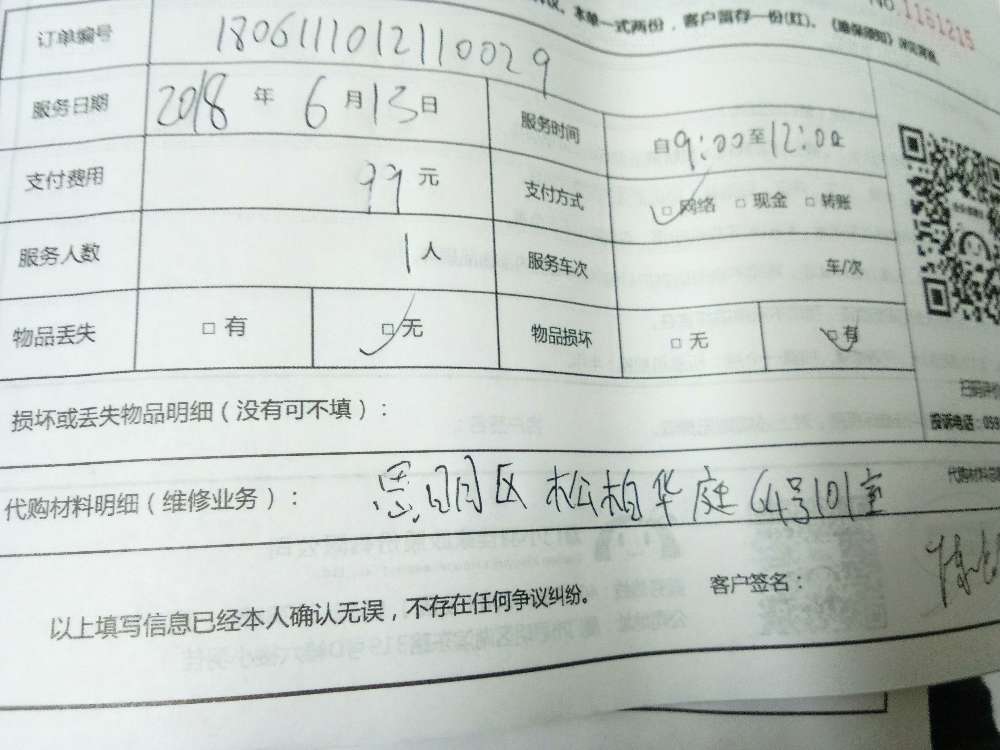 本单一式两份，客户留存一份(红)。
NO.1161215
订单编号 1806111012110029
服务日期 2018 年 6 月 13 日 服务时间 自 9:00 至 12:00 止
支付费用 99 元 支付方式 □ 网络 □ 现金 □ 转账
服务人数 1 人 服务车次 车/次
物品丢失 □ 有 □ 无 物品损坏 □ 无 □ 有
损坏或丢失物品明细（没有可不填）：
投诉电话：059
代购材料明细（维修业务）： 思明区松柏华庭64号101室
客户签名：
以上填写信息已经本人确认无误，不存在任何争议纠纷。